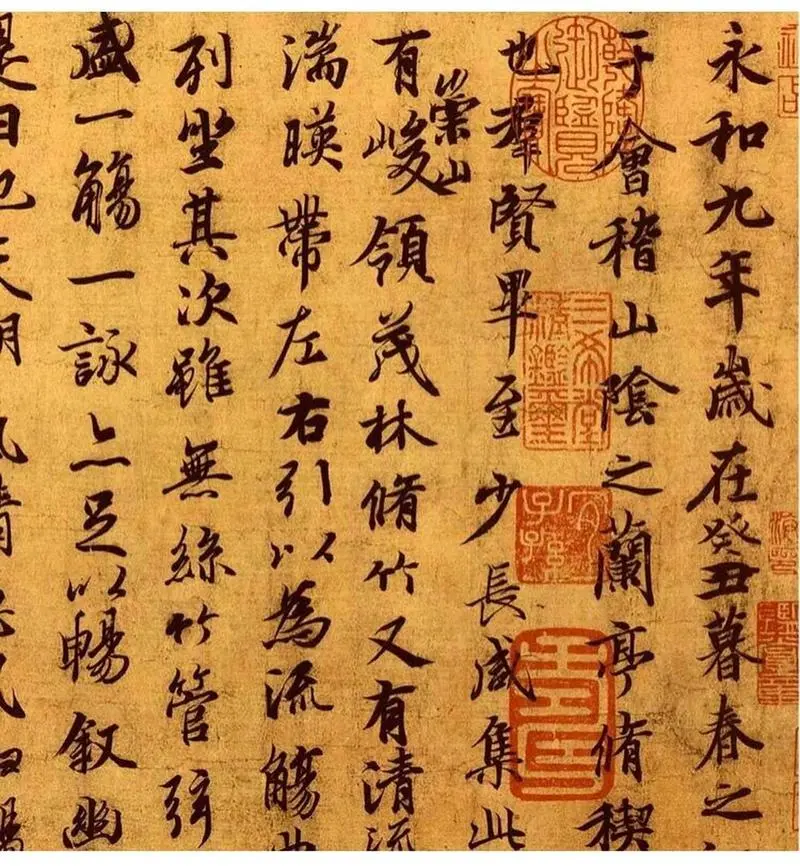 永和九年歲在癸丑暮春之
于會稽山陰之蘭亭脩稧
也羣賢畢至少長咸集此
有崇山峻領茂林脩竹又有清流
湍暎帶左右引以為流觴曲
列坐其次雖無絲竹管弦
盛一觴一詠亦足以暢叙幽
是日也天朗氣清
三希堂精鑑璽
宜子孫